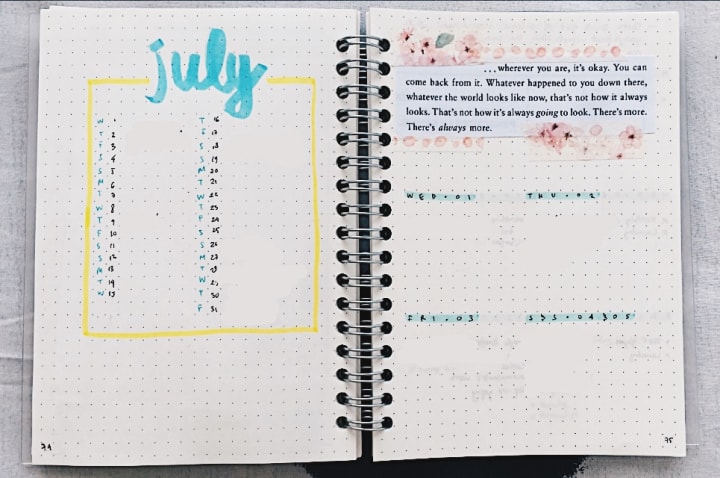 july
W 1
T 2
F 3
S 4
S 5
M 6
T 7
W 8
T 9
F 10
S 11
S 12
M 13
T 14
W 15
T 16
F 17
S 18
S 19
M 20
T 21
W 22
T 23
F 24
S 25
S 26
M 27
T 28
W 29
T 30
F 31
74
...wherever you are, it's okay. You can
come back from it. Whatever happened to you down there,
whatever the world looks like now, that's not how it always
looks. That's not how it's always going to look. There's more.
There's always more.
WED.01 THU.02
FRI.03 S+S.04+05
75